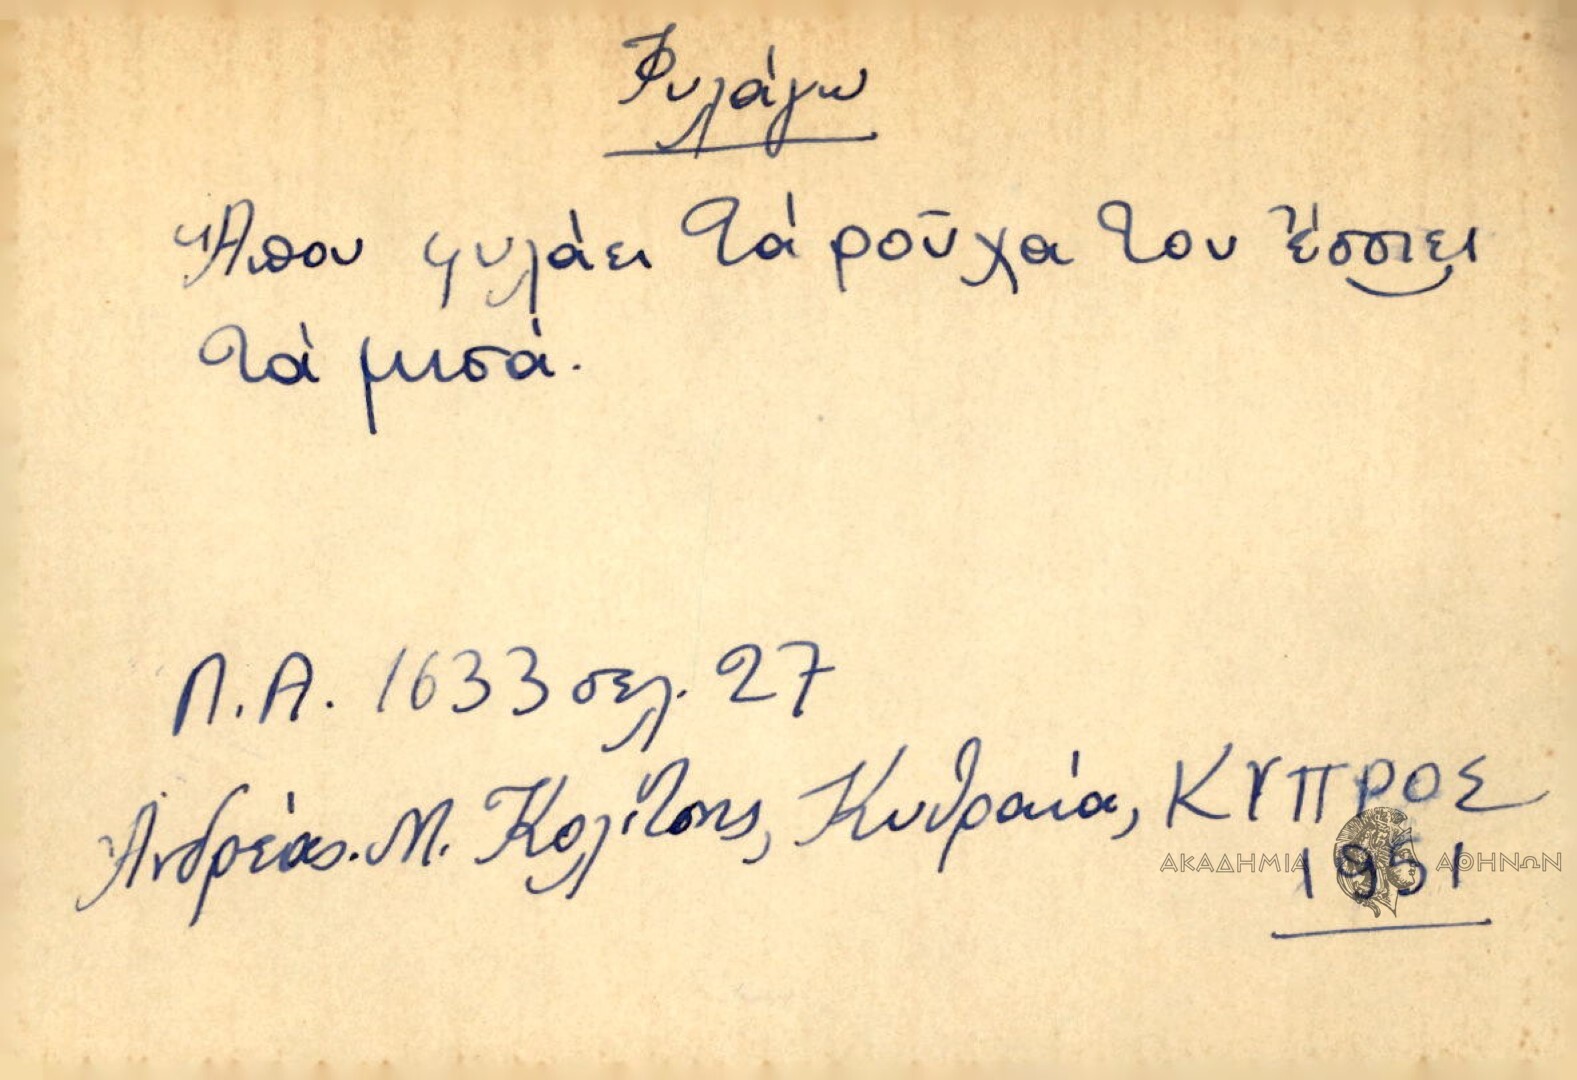 Φυλάγω
Ἀπου φυλάει τά ροῦχα του ἔσσιει
τά μισά.
Π.Α. 1633 σελ. 27
Ἀνδρέας. Μ. Κολίτσης, Κυθραία, ΚΥΠΡΟΣ
1951
ΑΚΑΔΗΜΙΑ ΑΘΗΝΩΝ